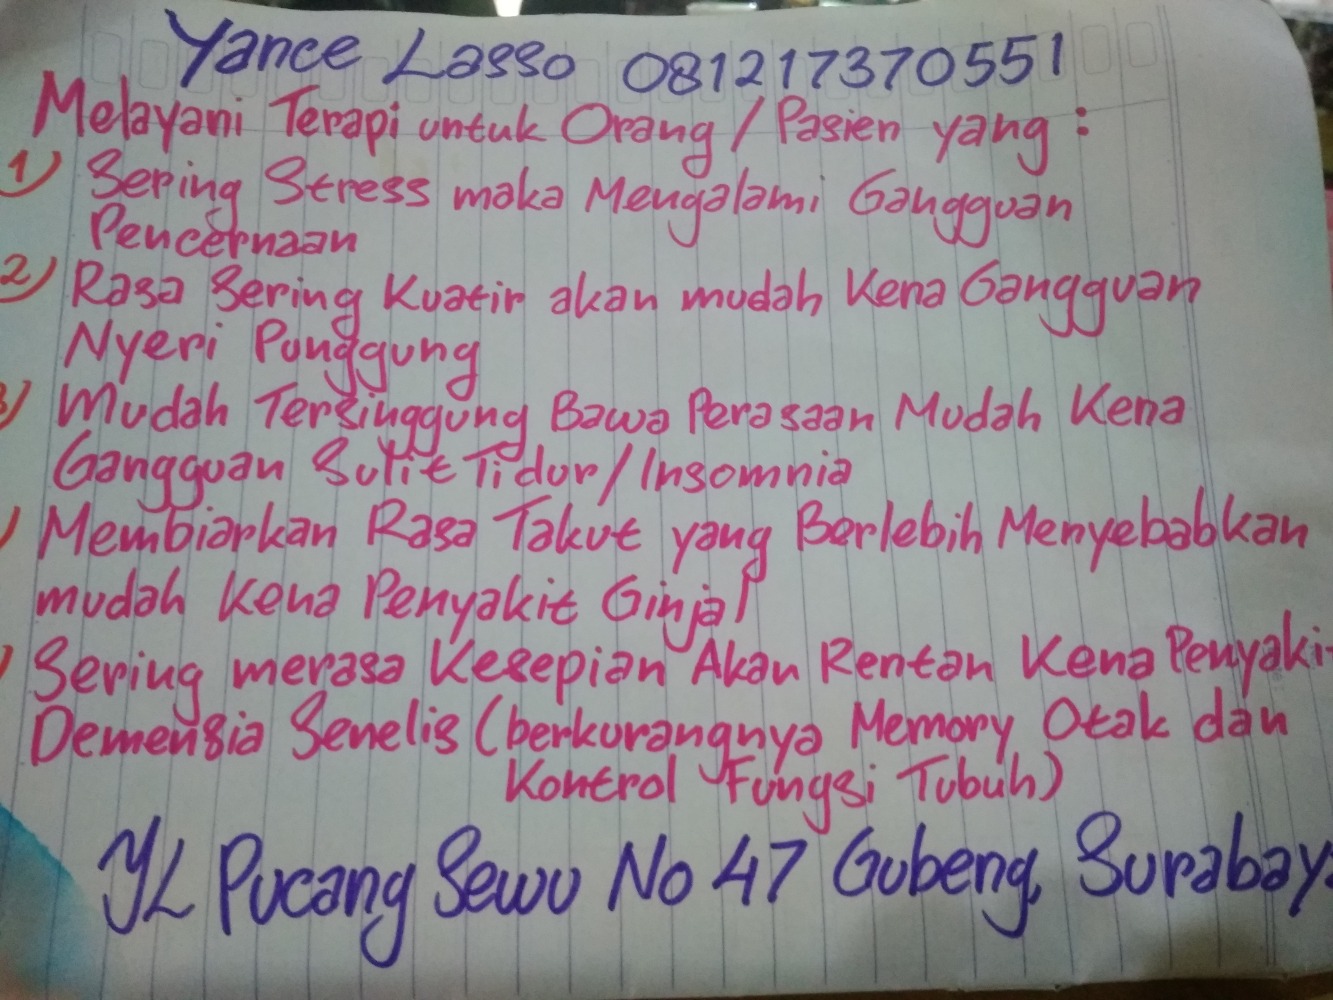 Yance Lasso 081217370551
Melayani Terapi untuk Orang / Pasien yang :
1) Sering Stress maka Mengalami Gangguan
Pencernaan
2) Rasa Sering Kuatir akan mudah Kena Gangguan
Nyeri Punggung
3) Mudah Tersinggung Bawa Perasaan Mudah Kena
Gangguan Sulit Tidur / Insomnia
) Membiarkan Rasa Takut yang Berlebih Menyebabkan
mudah Kena Penyakit Ginjal
) Sering merasa Kesepian Akan Rentan Kena Penyaki
Demensia Senelis (berkurangnya Memory Otak dan
Kontrol Fungsi Tubuh)
JL Pucang Sewu No 47 Gubeng, Surabaya